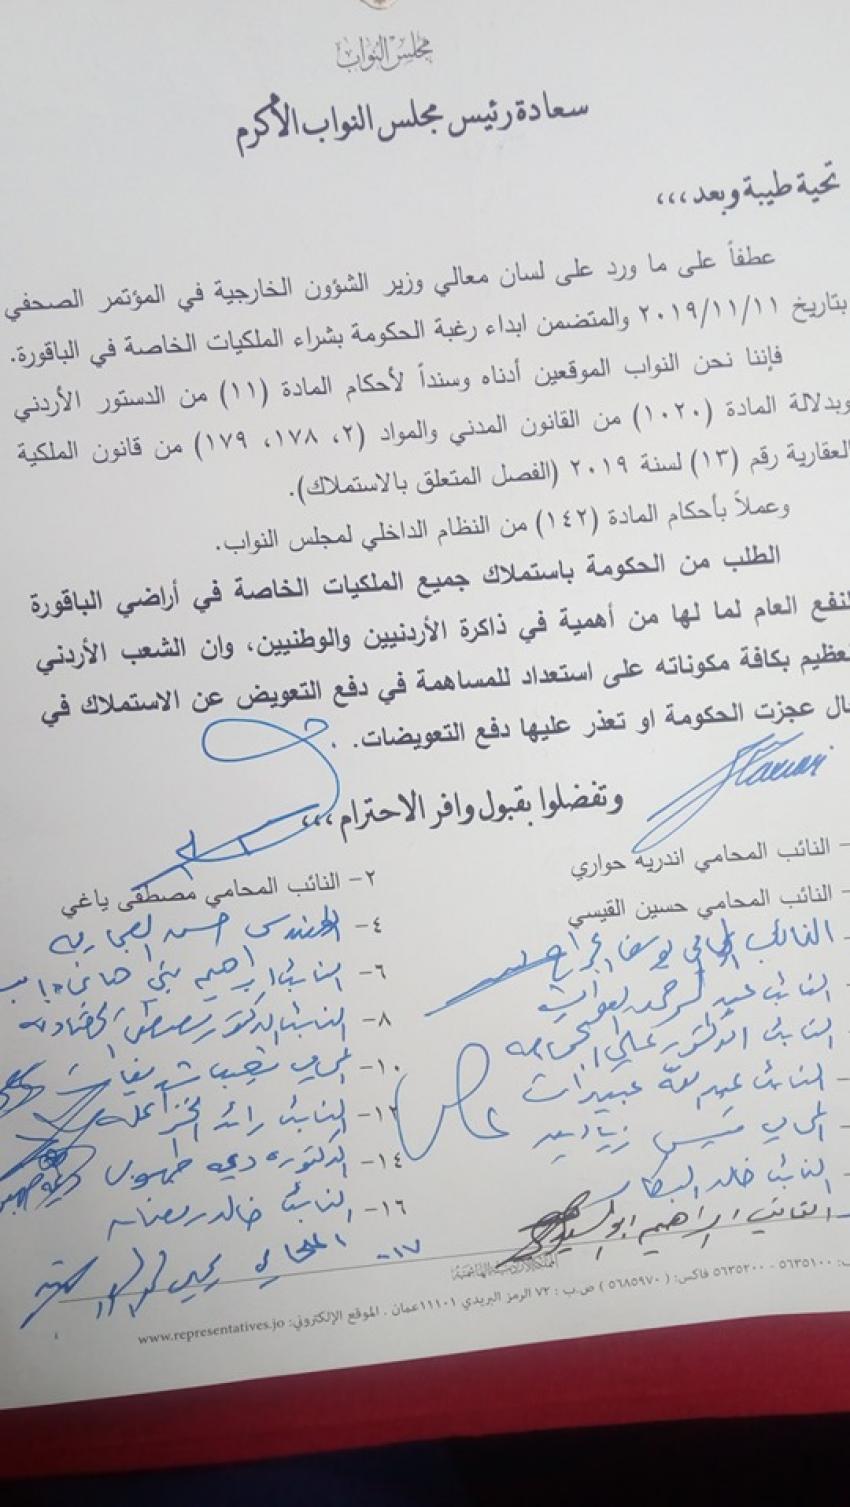 مجلس النواب
سعادة رئيس مجلس النواب الأكرم
تحية طيبة وبعد ،،،
عطفاً على ما ورد على لسان معالي وزير الشؤون الخارجية في المؤتمر الصحفي
بتاريخ ٢٠١٩/١١/١١ والمتضمن ابداء رغبة الحكومة بشراء الملكيات الخاصة في الباقورة.
فإننا نحن النواب الموقعين أدناه وسنداً لأحكام المادة (١١) من الدستور الأردني
وبدلالة المادة (١٠٢٠) من القانون المدني والمواد (٢، ١٧٨، ١٧٩) من قانون الملكية
العقارية رقم (١٣) لسنة ٢٠١٩ (الفصل المتعلق بالاستملاك).
وعملاً بأحكام المادة (١٤٢) من النظام الداخلي لمجلس النواب.
الطلب من الحكومة باستملاك جميع الملكيات الخاصة في أراضي الباقورة
لنفع العام لما لها من أهمية في ذاكرة الأردنيين والوطنيين، وان الشعب الأردني
لعظيم بكافة مكوناته على استعداد للمساهمة في دفع التعويض عن الاستملاك في
ال عجزت الحكومة او تعذر عليها دفع التعويضات.
وتفضلوا بقبول وافر الاحترام ،،،
- النائب المحامي اندريه حواري
٢- النائب المحامي مصطفى ياغي
- النائب المحامي حسين القيسي
٤- المهندس
- النائب المحامي يوسف الجراح
٦- النائب ابراهيم بني هاني
النائب عبد الرحمن
٨- النائب الدكتور مصطفى
النائب الدكتور علي
١٠- المحامي
النائب عبيدات
١٢- النائب رائد الخزاعلة
المحامي قيس زيادين
١٤- الدكتورة ديمة طهبوب
النائب خالد البكار
١٦- النائب خالد رمضان
النائب ابراهيم ابو السيد
١٧- المحامي يحيى
المملكة الأردنية الهاشمية
: ٥٦٣٥١٠٠ - ٥٦٣٥٢٠٠ فاكس: ( ٥٦٨٥٩٧٠ ) ص.ب : ٧٢ الرمز البريدي ١١١٠١عمان . الموقع الإلكتروني: www.representatives.jo